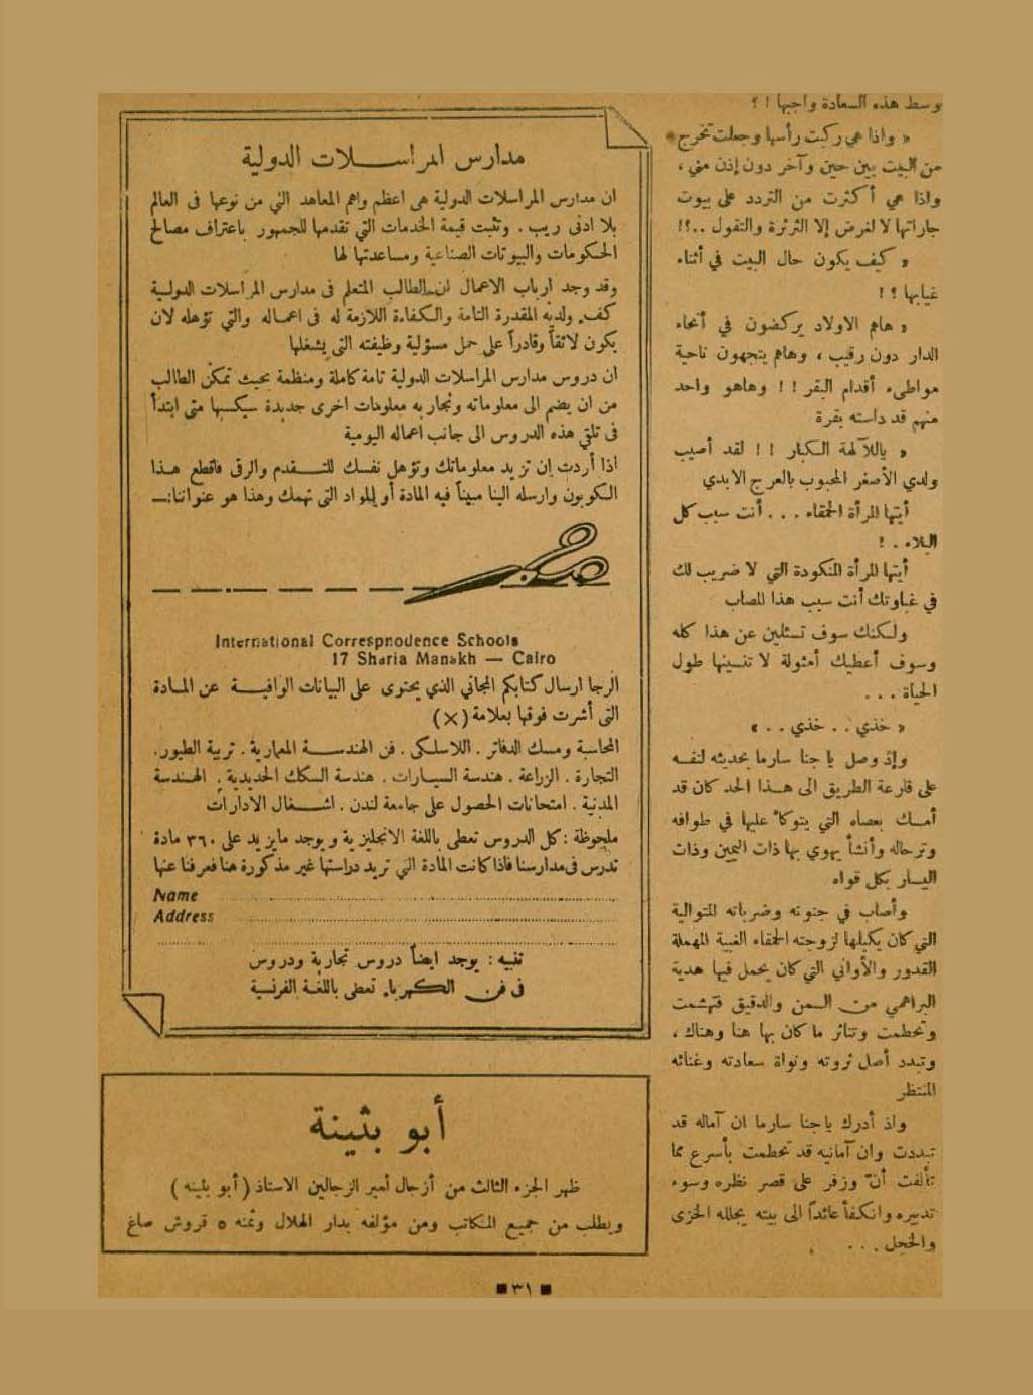 وسط هذه السعادة واجبها ! ؟
« واذا هي ركبت رأسها وجعلت تخرج
من البيت بين حين وآخر دون إذن مني ،
واذا هي أكثرت من التردد على بيوت
جاراتها لا لغرض إلا الثرثرة والتقول ..؟!
« كيف يكون حال البيت في أثناء
غيابها ؟ !
« هاهم الاولاد يركضون في أنحاء
الدار دون رقيب ، وهاهم يتجهون ناحية
مواطىء أقدام البقر ! ! وهاهو واحد
منهم قد داسته بقرة
« ياللآلهة الكبار ! ! لقد أصيب
ولدي الأصغر المحبوب بالعرج الابدي
أيتها المرأة الحمقاء ... أنت سبب كل
البلاء . !
أيتها المرأة المنكودة التي لا ضريب لك
في غباوتك أنت سبب هذا المصاب
ولكنك سوف تسئلين عن هذا كله
وسوف أعطيك أمثولة لا تنسينها طول
الحياة ...
« خذي .. خذي .. »
وإذ وصل ياجنا سارما بحديثه لنفسه
على قارعة الطريق الى هذا الحد كان قد
أمسك بعصاه التي يتوكأ عليها في طوافه
وترحاله وأنشأ يهوي بها ذات اليمين وذات
اليسار بكل قواه
وأصاب في جنونه وضرباته المتوالية
التي كان يكيلها لزوجته الحمقاء الغبية المهملة
القدور والأواني التي كان يحمل فيها هدية
البراهمي من السمن والدقيق فتهشمت
وتحطمت وتناثر ما كان بها هنا وهناك ،
وتبدد أصل ثروته ونواة سعادته وغنائه
المنتظر
واذ أدرك ياجنا سارما ان آماله قد
تبددت وان أمانيه قد تحطمت بأسرع مما
تألفت أنّ وزفر على قصر نظره وسوء
تدبيره وانكفأ عائداً الى بيته يجلله الخزى
والخجل ...
مدارس المراسلات الدولية
ان مدارس المراسلات الدولية هى اعظم واهم المعاهد التي من نوعها فى العالم
بلا ادنى ريب . وتثبت قيمة الخدمات التي تقدمها للجمهور باعتراف مصالح
الحكومات والبيوتات الصناعية ومساعدتها لها
وقد وجد ارباب الاعمال ان الطالب المتعلم فى مدارس المراسلات الدولية
كفء ولديه المقدرة التامة والكفاءة اللازمة له فى اعماله والتي تؤهله لان
يكون لائقاً وقادراً على حمل مسؤلية وظيفته التى يشغلها
ان دروس مدارس المراسلات الدولية تامة كاملة ومنظمة بحيث تمكن الطالب
من ان يضم الى معلوماته وتجاربه معلومات اخرى جديدة سيكسبها متى ابتدأ
فى تلقي هذه الدروس الى جانب اعماله اليومية
اذا أردت إن تزيد معلوماتك وتؤهل نفسك للتقدم والرقى فاقطع هذا
الكوبون وارسله الينا مبيناً فيه المادة أو المواد التى تهمك وهذا هو عنواننا:ــ
International Correspnodence Schools
17 Sharia Manakh — Cairo
الرجا ارسال كتابكم المجاني الذي يحتوى على البيانات الوافية عن المادة
التى أشرت فوقها بعلامة (×)
المحاسبة ومسك الدفاتر . اللاسلكى . فن الهندسة المعمارية . تربية الطيور .
التجارة . الزراعة . هندسة السيارات . هندسة السكك الحديدية . الهندسة
المدنية . امتحانات الحصول على جامعة لندن . اشغال الأدارات
ملحوظة : كل الدروس تعطى باللغة الانجليزية ويوجد مايزيد على ٣٦٠ مادة
تدرس فى مدارسنا فاذا كانت المادة التي تريد دراستها غير مذكورة هنا فعرفنا عنها
Name
Address
تنبيه : يوجد ايضاً دروس تجارية ودروس
فى فن الكهرباء تعطى باللغة الفرنسية
أبو بثينة
ظهر الجزء الثالث من أزجال أمير الزجالين الاستاذ ( أبو بثينه )
ويطلب من جميع المكاتب ومن مؤلفه بدار الهلال وثمنه ٥ قروش صاغ
٣١